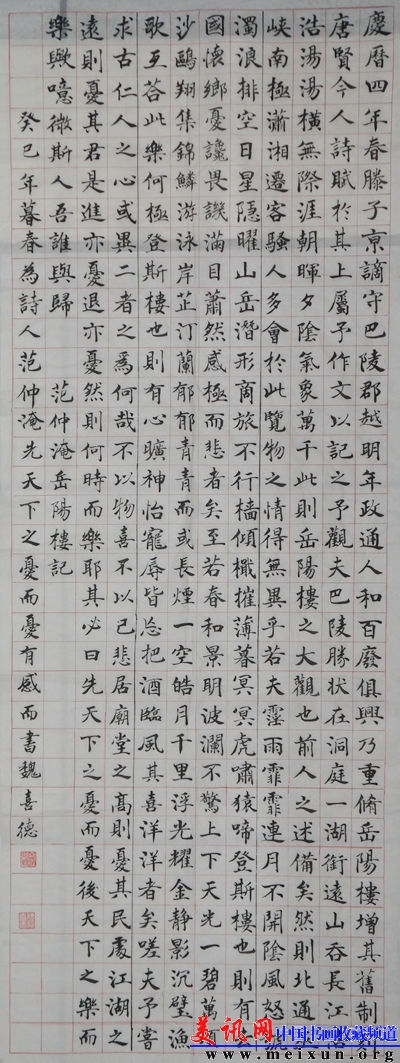 慶曆四年春滕子京謫守巴陵郡越明年政通人和百廢俱興乃重脩岳陽樓增其舊制刻
唐賢今人詩賦於其上屬予作文以記之予觀夫巴陵勝狀在洞庭一湖銜遠山吞長江浩
浩湯湯橫無際涯朝暉夕陰氣象萬千此則岳陽樓之大觀也前人之述備矣然則北通巫
峽南極瀟湘遷客騷人多會於此覽物之情得無異乎若夫霪雨霏霏連月不開陰風怒號
濁浪排空日星隱曜山岳潛形商旅不行檣傾檝摧薄暮冥冥虎嘯猿啼登斯樓也則有去
國懷鄉憂讒畏譏滿目蕭然感極而悲者矣至若春和景明波瀾不驚上下天光一碧萬頃
沙鷗翔集錦鱗游泳岸芷汀蘭郁郁青青而或長煙一空皓月千里浮光耀金靜影沉璧漁
歌互荅此樂何極登斯樓也則有心曠神怡寵辱皆忘把酒臨風其喜洋洋者矣嗟夫予嘗
求古仁人之心或異二者之為何哉不以物喜不以己悲居廟堂之高則憂其民處江湖之
遠則憂其君是進亦憂退亦憂然則何時而樂耶其必曰先天下之憂而憂後天下之樂而
樂歟噫微斯人吾誰與歸 范仲淹岳陽樓記
癸巳年暮春為詩人范仲淹先天下之憂而憂有感而書魏喜德
美讯网 中国书画收藏频道
www.meixun.org